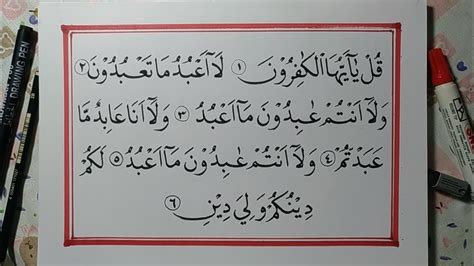 قُلْ يٰٓاَيُّهَا الْكٰفِرُوْنَ ۙ ١ لَآ اَعْبُدُ مَا تَعْبُدُوْنَ ۙ ٢
وَلَآ اَنْتُمْ عٰبِدُوْنَ مَآ اَعْبُدُ ۚ ٣ وَلَآ اَنَا۠ عَابِدٌ مَّا
عَبَدْتُّمْ ۙ ٤ وَلَآ اَنْتُمْ عٰبِدُوْنَ مَآ اَعْبُدُ ۗ ٥ لَكُمْ
دِيْنُكُمْ وَلِيَ دِيْنِ ࣖ ٦
DRAWING PEN